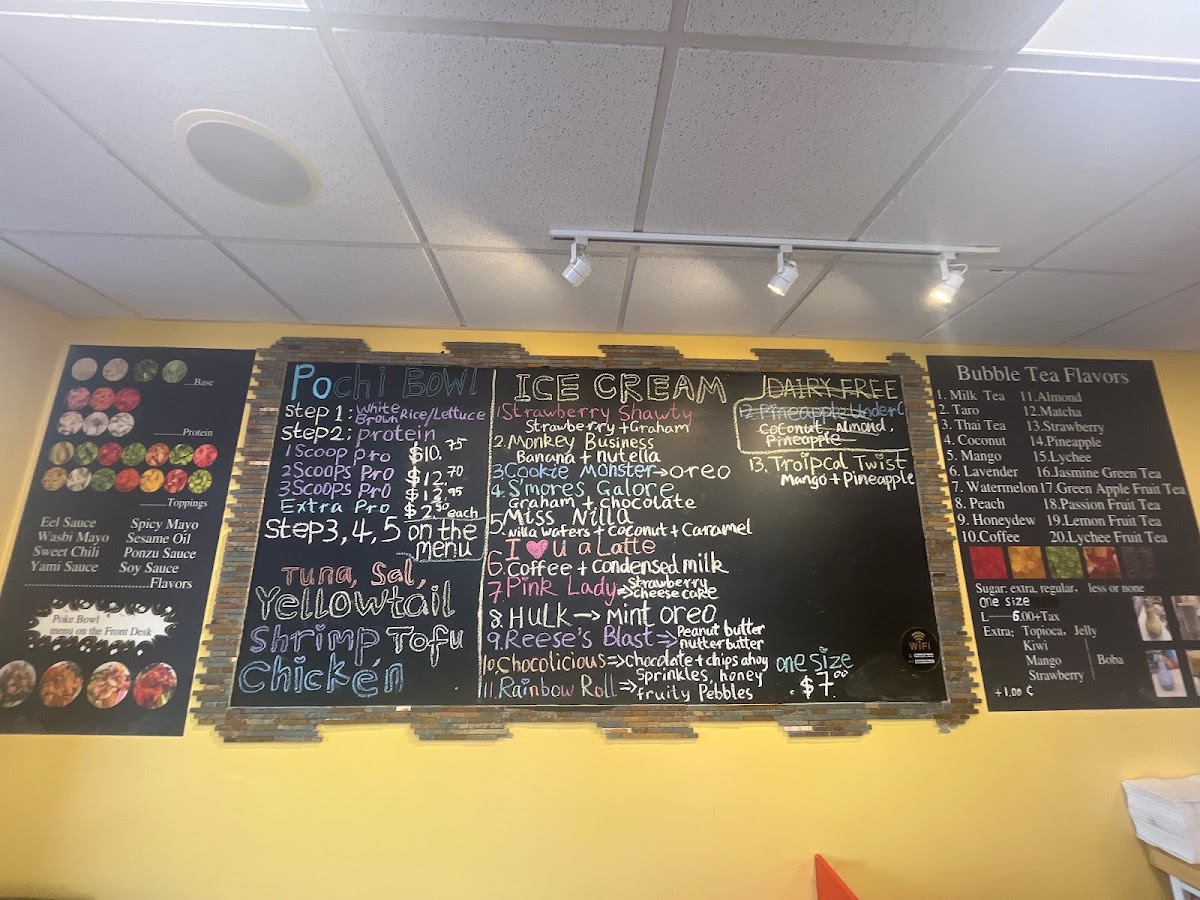 ....Base
..........Protein
............Toppings
Eel Sauce Spicy Mayo
Wasbi Mayo Sesame Oil
Sweet Chili Ponzu Sauce
Yami Sauce Soy Sauce
Flavors
Poke Bowl
menu on the Front Desk
Pochi Bowl
Step 1: White Brown Rice/Lettuce
Step2: protein
1 Scoop pro $10.75
2 Scoops Pro $12.70
3 Scoops Pro
Extra Pro $2.50 each
Step 3, 4, 5 on the
menu
Tuna, Sal,
Yellowtail
Shrimp Tofu
Chicken
ICE CREAM
1 Strawberry Shawty
Strawberry + Graham
2. Monkey Business
Banana + nutella
3. Cookie Monster → oreo
4. S'mores Galore
Graham + chocolate
5. Miss Nilla
nilla wafers + coconut + Caramel
I ♥ u a Latte
6. Coffee + condensed milk
7 Pink Lady ⇒ Strawberry
cheese cake
8. HULK → Mint oreo
9. Reese's Blast ⇒ Peanut butter
nutterbutter
10. Chocolicious ⇒ chocolate + chips ahoy
11. Rainbow Roll ⇒ Sprinkles, honey
fruity Pebbles
DAIRY FREE
12. Pineapple Under C
Coconut, Almond,
Pineapple
13. Troipcal Twist
Mango + Pineapple
one size
$7.00
WiFi
Bubble Tea Flavors
1. Milk Tea 11.Almond
2. Taro 12.Matcha
3. Thai Tea 13.Strawberry
4. Coconut 14.Pineapple
5. Mango 15.Lychee
6. Lavender 16.Jasmine Green Tea
7. Watermelon 17.Green Apple Fruit Tea
8. Peach 18.Passion Fruit Tea
9. Honeydew 19.Lemon Fruit Tea
10.Coffee 20.Lychee Fruit Tea
Sugar: extra, regular, less or none
one size
L 6.00+Tax
Extra: Topioca, Jelly
Kiwi
Mango Boba
Strawberry
+1.00 ¢